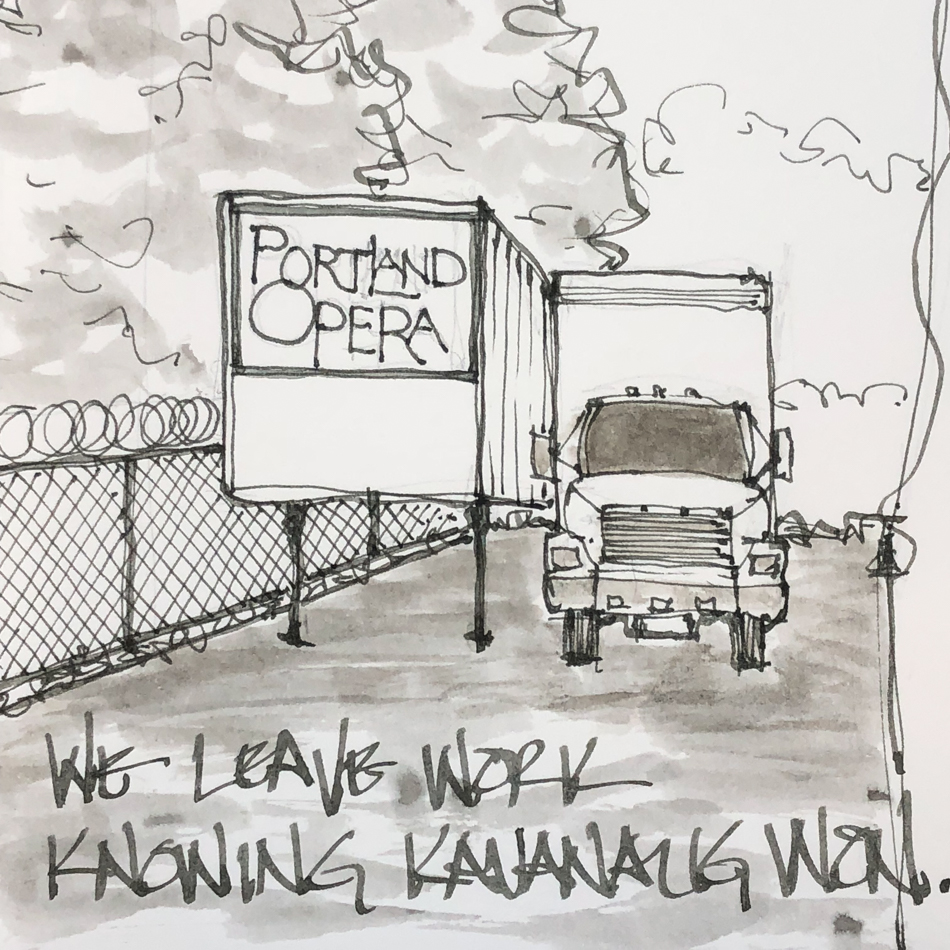 PORTLAND
OPERA
WE LEAVE WORK
KNOWING KAVANAUG WON.